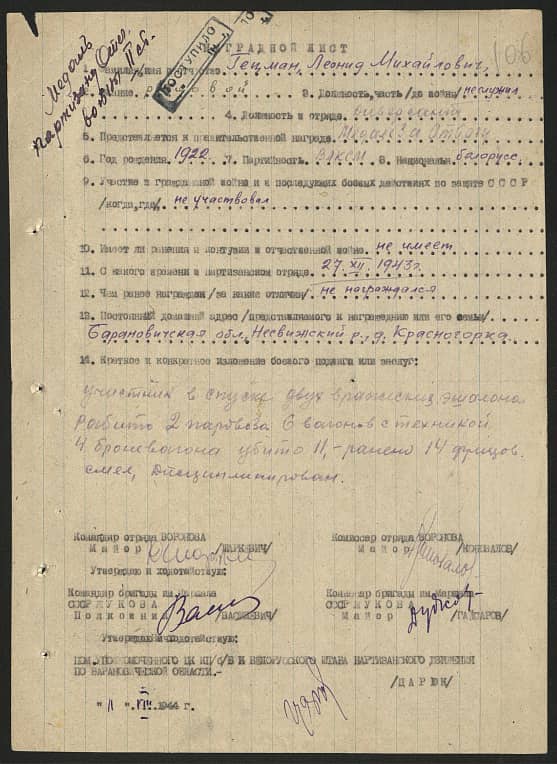 Медаль
Партизану Отеч.
войны II ст.
ПОСТУПИЛО
106
НАГРАДНОЙ ЛИСТ
Гецман, Леонид Михайлович,
рядовой 3. Должность, часть /до войны/ не служил
4. Должность в отряде.
5. Представляется к правительственной награде. Медаль "За Отвагу"
6. Год рождения. 1922. 7. Партийность. ВЛКСМ 8. Националън. белорусс.
9. Участие в гражданской войне и в последующих боевых действиях по защите СССР
/когда, где/. не участвовал
10. Имеет ли ранения и контузии в отечественной войне. не имеет
11. С какого времени в партизанском отряде. 27. XII. 1943 г.
12. Чем ранее награжден /за какие отличия/ не награждался
13. Постоянный домашний адрес /представляемого к награждению или его семьи/
Барановичская обл, Несвижский р, д. Красногорка
14. Краткое и конкретное изложение боевого подвига или заслуг:
участник в спуске двух вражеских эшалона
Разбито 2 паровоза 6 вагонов с техникой
4 броневагона убито 11, - ранено 14 фрицов.
смел, Дисциплинирован.
Командир отряда ВОРОНОВА
Майор /МАРКЕВИЧ/
Комиссар отряда ВОРОНОВА
Майор /КОНОВАЛОВ/
Утверждаю и ходотействую:
Командир бригады им. Маршала
СССР ЖУКОВА
Полковник /ВАСИЛЕВИЧ/
Комиссар бригады им. Маршала
СССР ЖУКОВА
Майор /ГАПСАРОВ/
Утверждаю и ходотействую:
ПОМ. УПОЛНОМОЧЕННОГО ЦК КП/б/Б И БЕЛОРУССКОГО ШТАБА ПАРТИЗАНСКОГО ДВИЖЕНИЯ
ПО БАРАНОВИЧЕСКОЙ ОБЛАСТИ.-
/ЦАРЮК/
1944 г.